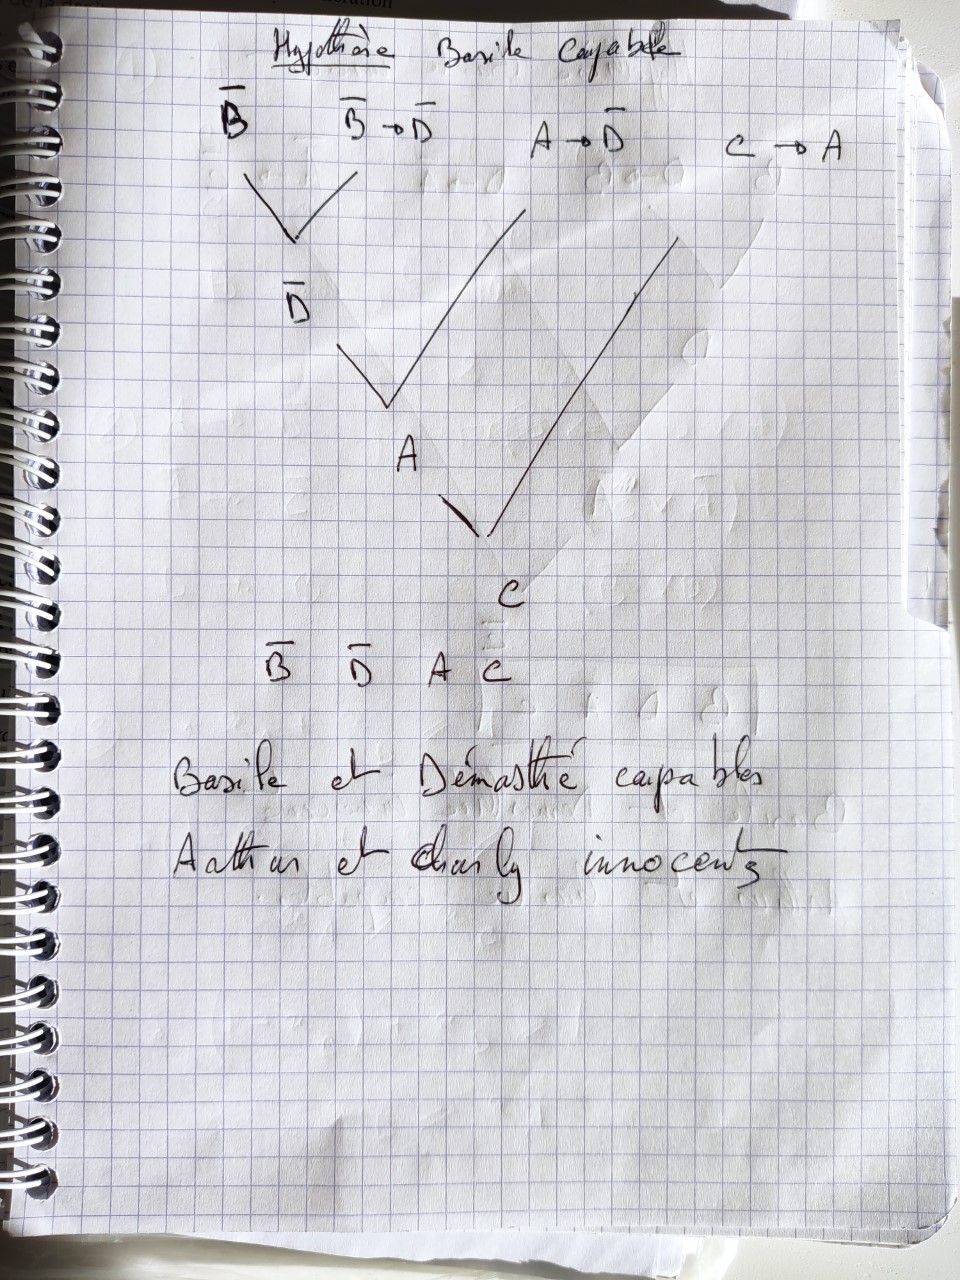 Hypothèse Basile Coupable
B̅ B̅ → D̅ A → D̅ C → A
D̅
A
C
B̅ D̅ A C
Basile et Démasthé coupables
Aathur et charly innocents